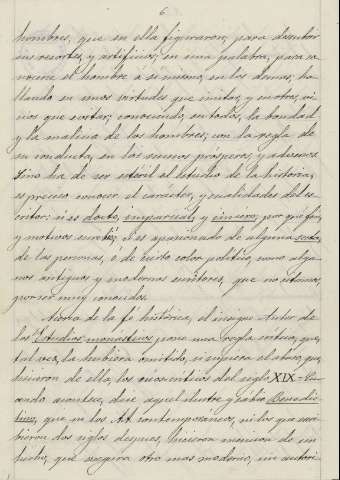 6
hombres, que en ella figuraron, para descubrir
sus resortes, y artificios; en una palabra, para co-
nocerse el hombre a si mismo, en los demas, ha-
llando en unos virtudes que imitar, y en otros, vi-
cios que evitar; conociendo, en todos, la bondad
y la malicia de los hombres; con la regla de
su conducta, en los sucesos prósperos, y adversos.
Sino ha de ser esteril el estudio de la historia,
es preciso conocer el carácter, y cualidades del es-
critor: si es docto, imparcial, y sincero, por que
y motivos escribió; si es apasionado de alguna secta,
de las personas, o de cierto color politico, como algu-
nos antiguos y modernos escritores, que no citamos,
por ser muy conocidos.
Acerca de la fé histórica, el insigne Autor de
los Estudios monásticos pone una regla crítica, que,
tal vez, la hubiera omitido, si supiera el abuso, que
hicieron de ella, los del siglo XIX. Cu-
ando acontece, dice aquel ilustre y sábio Benedic-
tino, que ni los AA. contemporaneos, ni los que escri-
bieron dos siglos despues, hicieron mencion de un
hecho, que asegura otro mas moderno, sin autori-